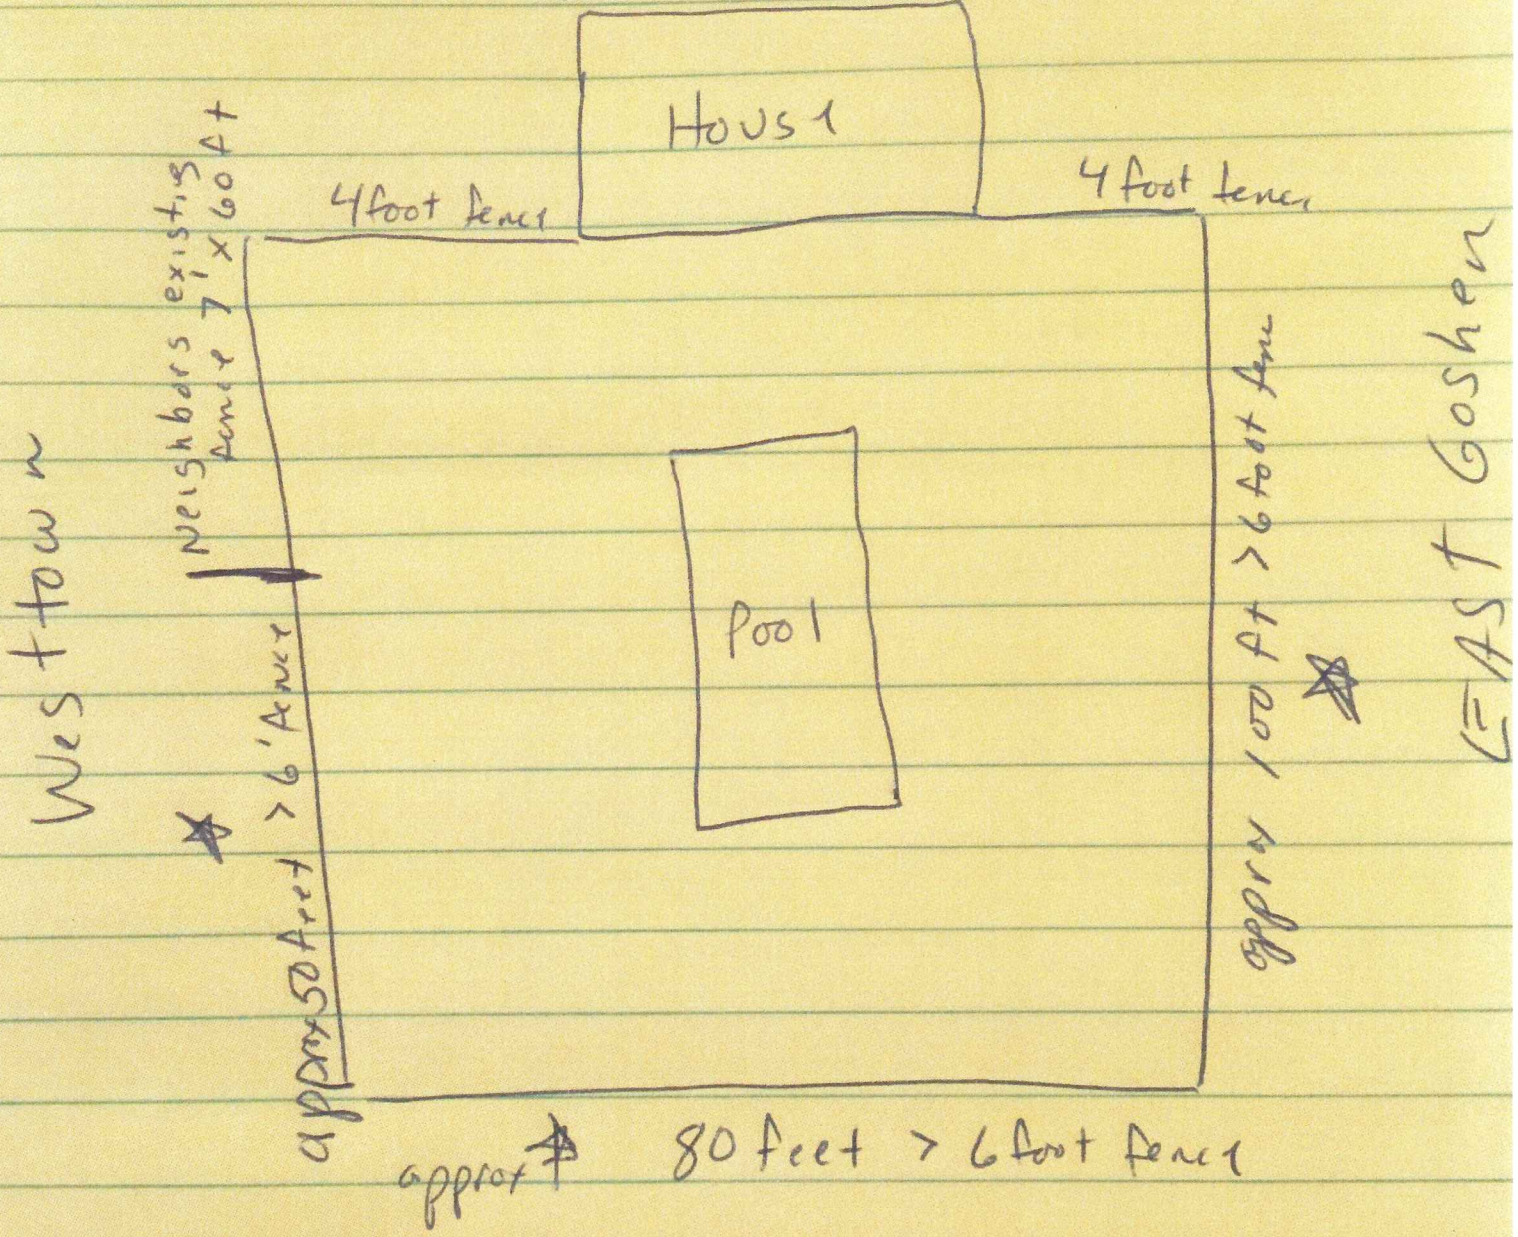 House
4 foot fence
4 foot fence
Neighbors existig
fence 7' x 60 ft
Westtown
approx 50 feet > 6' fence
Pool
approx 100 ft > 6 foot fence
EAST Goshen
approx 80 feet > 6 foot fence